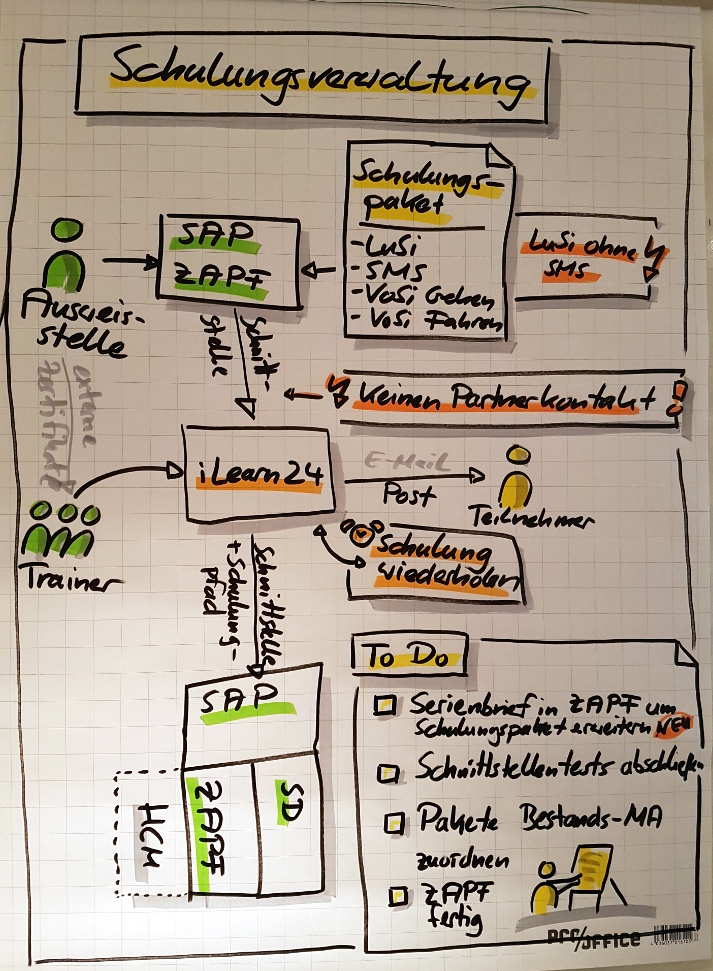 Schulungsverwaltung
Schulungs-
paket
- LuSi
- SMS
- VoSi Gehen
- VoSi Fahren
LuSi ohne
SMS
SAP
ZAPF
Ausweis-
stelle
Schnitt-
stelle
externe
Zertifikate
Keinen Partnerkontakt!
iLearn24
E-Mail
Post
Teilnehmer
Trainer
Schulung
wiederholen
Schnittstelle
+ Schulung-
pfad
SAP
ZAPF
SD
HCM
To Do
Serienbrief in ZAPF um
Schulungspaket erweitern NEU
Schnittstellentests abschließen
Pakete Bestands-MA
zuordnen
ZAPF
fertig